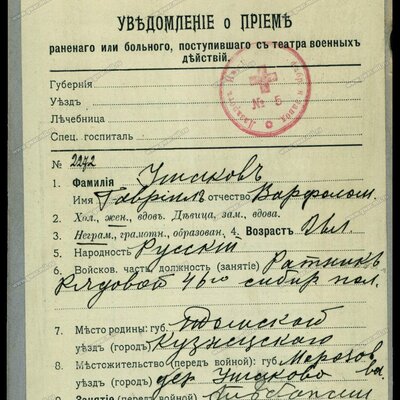 УВѢДОМЛЕНІЕ о ПРІЕМѢ
раненаго или больного, поступившаго съ театра военныхъ
дѣйствій.
Губернія
Уѣздъ
Лѣчебница
Спец. госпиталь
№ 5
№ 2272
1. Фамилія Ушаковъ
Имя Гавріилъ отчество Варфолом.
2. Хол., жен., вдовъ. Дѣвица, зам., вдова.
3. Неграм., грамотн., образован. 4. Возрастъ
5. Народность Русскій
6. Войсков. часть, должность (занятіе) Ратникъ
Рядовой 46го сибир пол.
7. Мѣсто родины: губ. Томской
уѣздъ (городъ) Кузнецкаго
8. Мѣстожительство (передъ войной): губ.
уѣздъ (городъ) дер Ушаково
9. Занятіе (передъ войной)